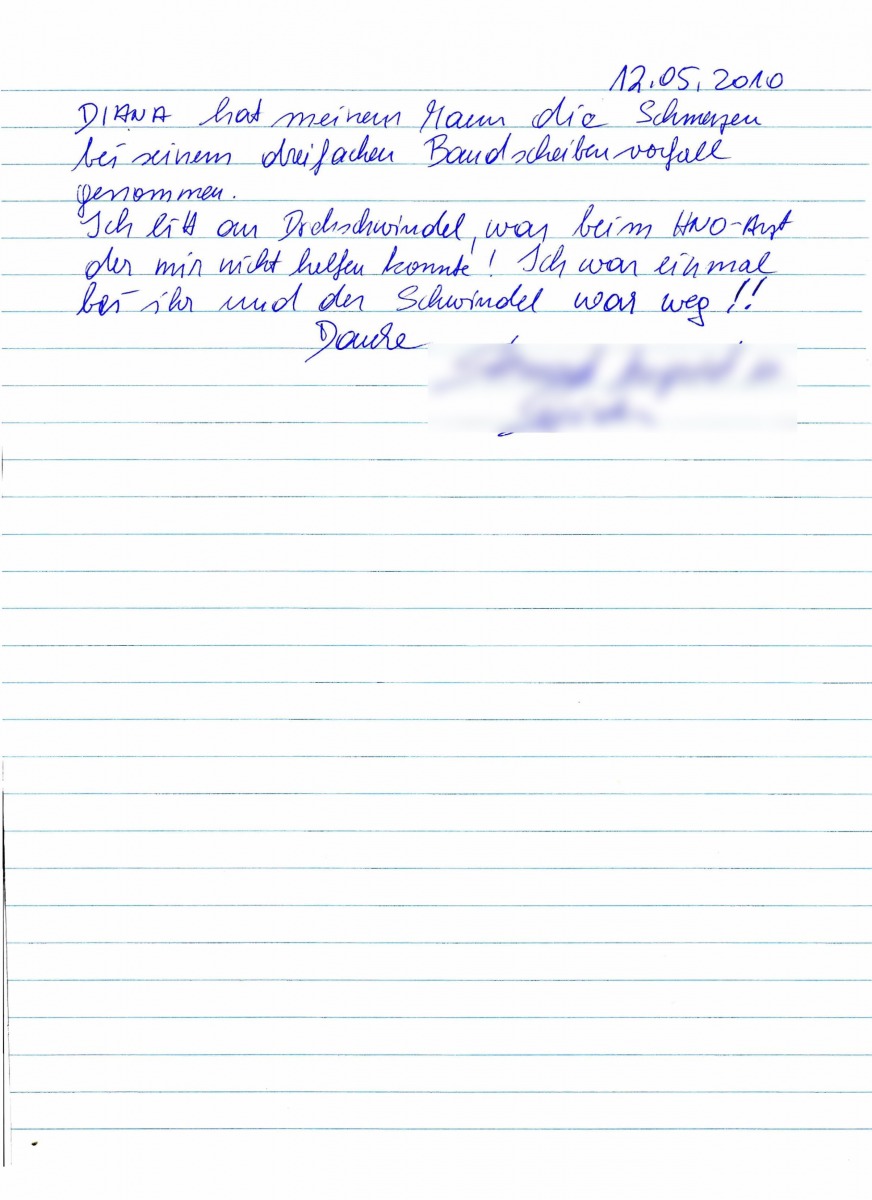 12.05.2010
DIANA hat meinem Mann die Schmerzen
bei seinem dreifachen Bandscheibenvorfall
genommen.
Ich litt an Drehschwindel, war beim HNO-Arzt
der mir nicht helfen konnte! Ich war einmal
bei ihr und der Schwindel war weg!!
Danke